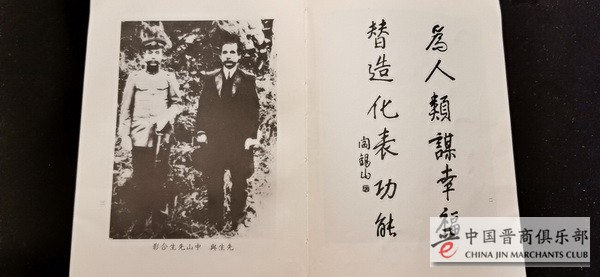 為人類謀幸福
替造化表功能
閻錫山
先生與 中山先生合影
中国晋商俱乐部
CHINA JIN MARCHANTS CLUB